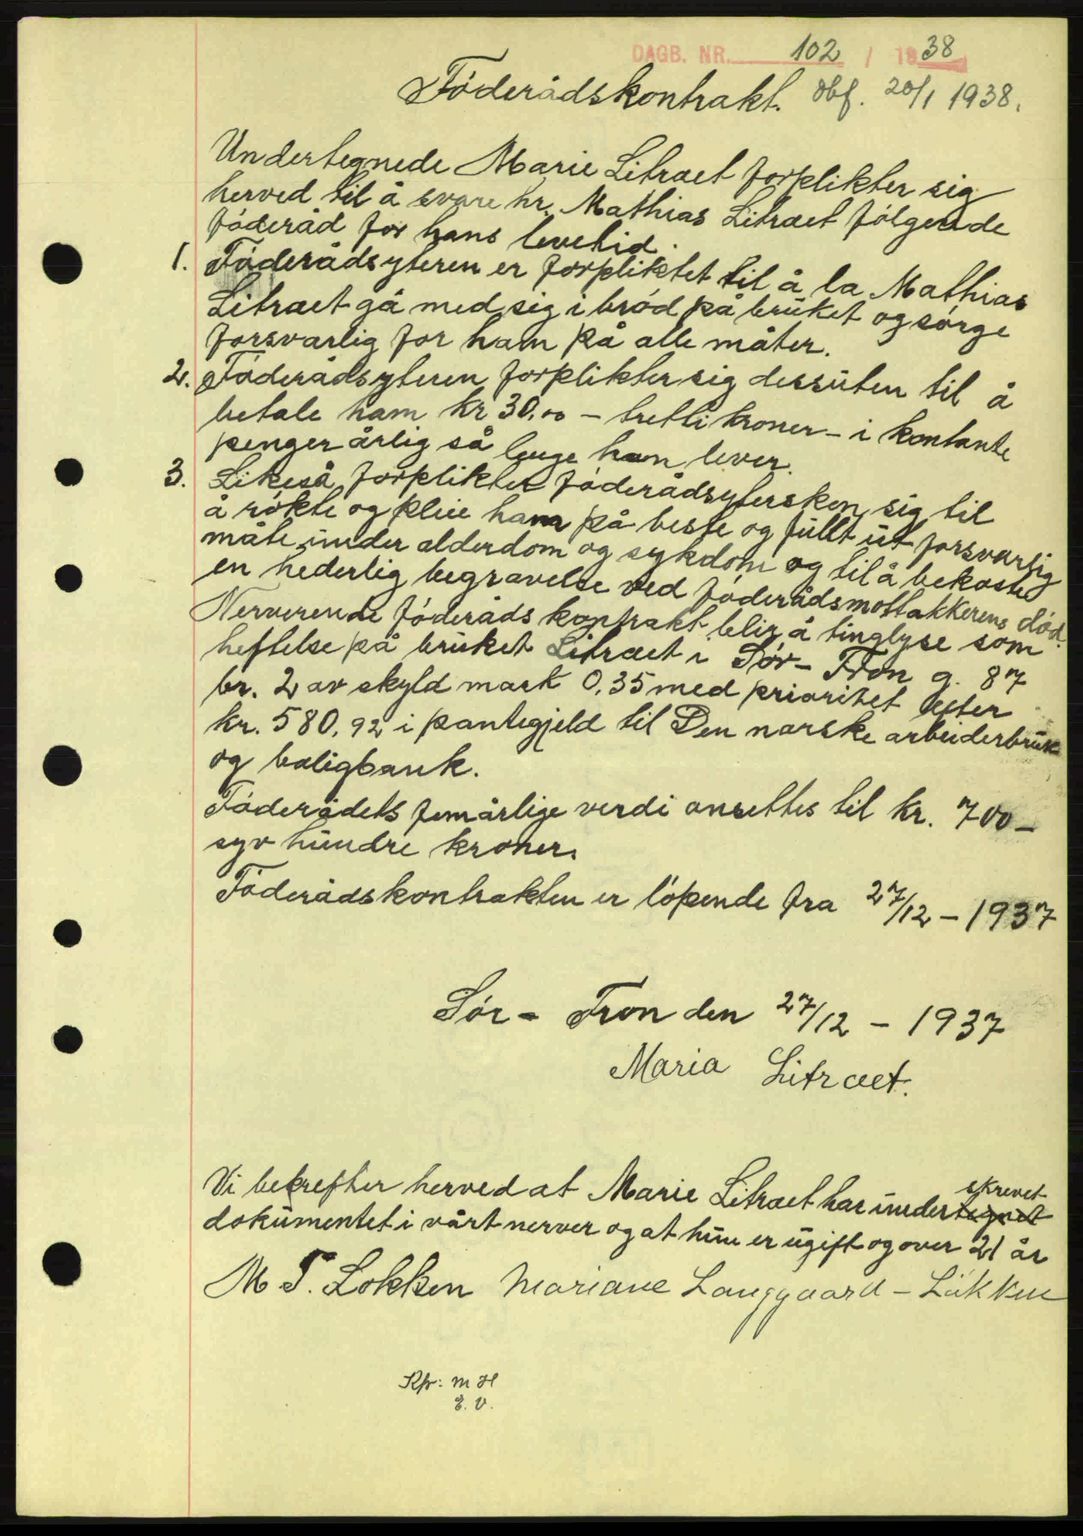 DAGB. NR. 102 / 1938
Föderådskontrakt. dbf. 20/1 1938.
Undertegnede Marie Litraet forplikter sig
herved til å svare hr. Mathias Litraet følgende
föderåd for hans levetid.
1. Föderådsyteren er forpliktet til å la Mathias
Litraet gå med sig i brød på bruket og sørge
forsvarlig for ham på alle måter.
2. Föderådsyteren forplikter sig dessuten til å
betale ham kr 30.00 - tretti kroner - i kontante
penger årlig så lenge han lever.
3. Likeså forplikter föderådsytersken sig til
å røkte og pleie ham på beste og fullt ut forsvarlig
måte under alderdom og sykdom og til å bekoste
en hederlig begravelse ved föderådsmottakkerens død.
Nerverende föderådskontrakt blir å tinglyse som
heftelse på bruket Litraet i Sör-Fron g. 87
br. 2 av skyld mark 0,35 med prioritet efter
kr. 580,92 i pantegjeld til Den norske arbeiderbruk
og boligbank.
Föderådets femårlige verdi ansettes til kr. 700-
syv hundre kroner.
Föderådskontrakten er löpende fra 27/12-1937
Sör- Fron den 27/12 - 1937
Maria Litraet.
skrevet
Vi bekrefter herved at Marie Litraet har undertegnet
dokumentet i vårt nerver og at hun er ugift og over 21 år
M T. Lokken Mariane Langgaard - Lökken
Kpr: M H
E. V.